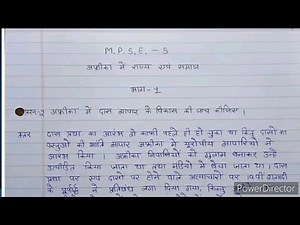 M.P.S.E. - 5
अफ्रीका में राज्य एवं समाज
भाग - 1
अफ्रीका में दास व्यापार के विकास की जांच कीजिए।
उत्तर दास प्रथा का आरंभ तो काफी पहले ही हो चुका था किन्तु दासों का
वस्तुओं की भांति व्यापार अफ्रीका में यूरोपीय व्यापारियों ने
आरंभ किया। अफ्रीका निवासियों को गुलाम बनाकर उन्हें
उत्पीड़ित किया जाता था तथा मंडियों में बेचा जाता था। दास
प्रथा पर एवं दासों पर होने वाले अत्याचारों पर 19वीं शताब्दी
के पूर्वार्द्ध में प्रतिबंध लगा दिया गया, किन्तु
PowerDirector